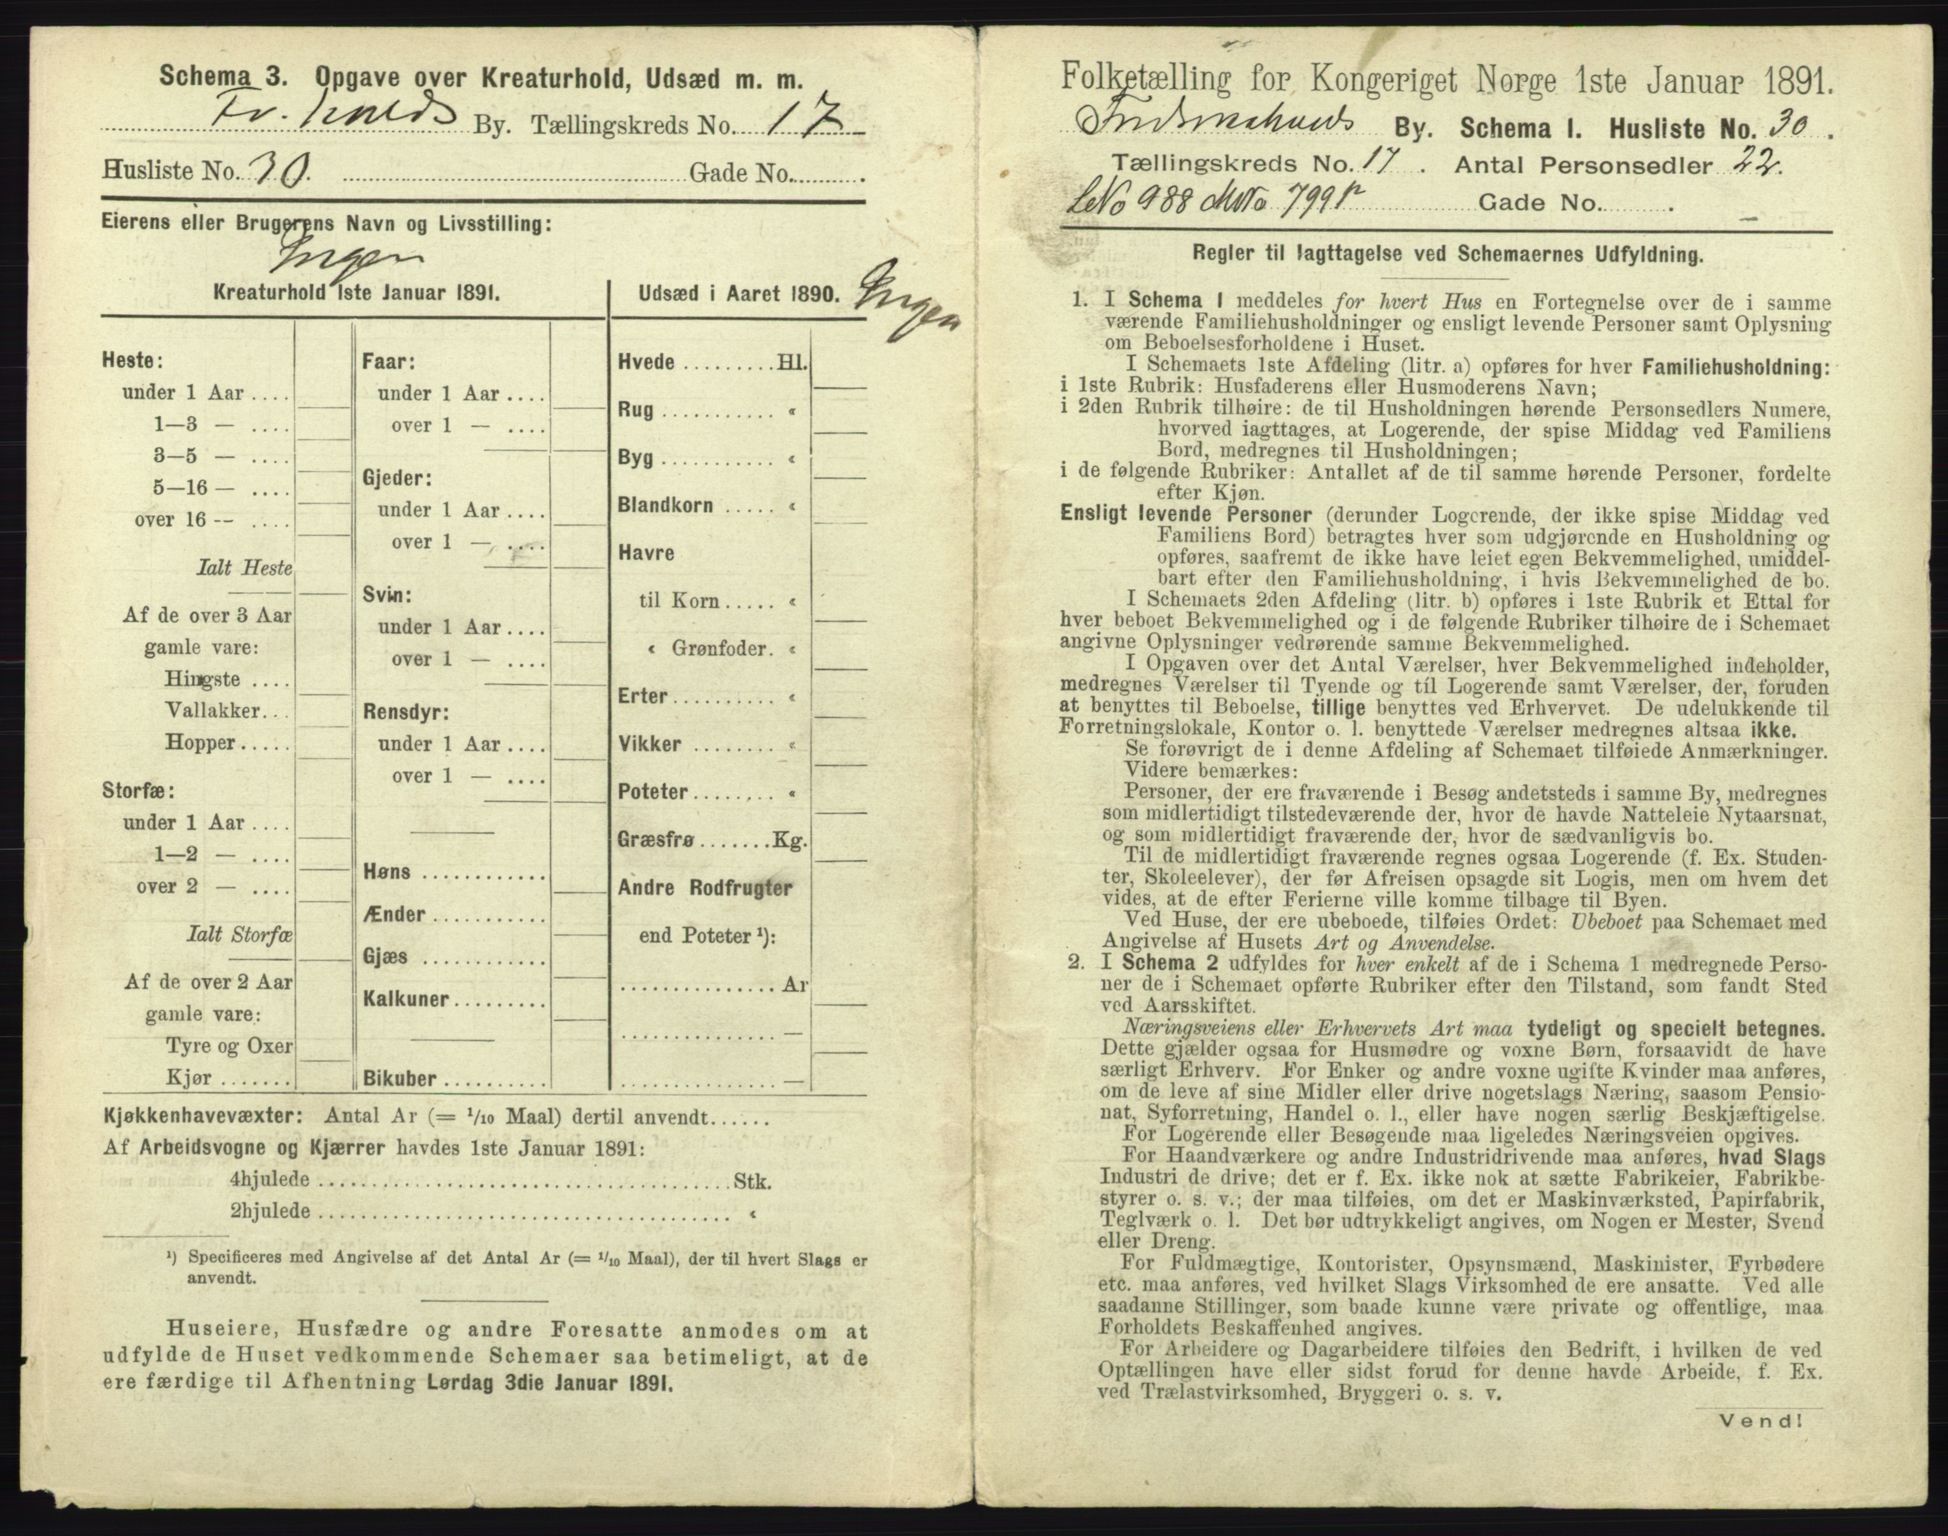 Schema 3. Opgave over Kreaturhold, Udsæd m. m.
Fr.halds By. Tællingskreds No. 17
Husliste No. 30. Gade No.
Eierens eller Brugerens Navn og Livsstilling:
Ingen
Kreaturhold 1ste Januar 1891.
Heste:
under 1 Aar ....
1—3 — ....
3—5 — ....
5—16 — ....
over 16 -- ....
Ialt Heste
Af de over 3 Aar
gamle vare:
Hingste ....
Vallakker...
Hopper.....
Storfæ:
under 1 Aar ....
1—2 — ....
over 2 — ....
Ialt Storfæ
Af de over 2 Aar
gamle vare:
Tyre og Oxer
Kjør .......
Faar:
under 1 Aar ....
over 1 — ....
Gjeder:
under 1 Aar ....
over 1 — ....
Svin:
under 1 Aar ....
over 1 — ....
Rensdyr:
under 1 Aar ....
over 1 — ....
Høns ............
Ænder ...........
Gjæs ............
Kalkuner.........
Bikuber ..........
Udsæd i Aaret 1890. Ingen
Hvede .........Hl.
Rug ........... «
Byg ........... «
Blandkorn ..... «
Havre
til Korn ..... «
« Grønfoder. «
Erter.......... «
Vikker ........ «
Poteter........ «
Græsfrø .......Kg.
Andre Rodfrugter
end Poteter ¹):
............... Ar
............... —
............... —
Kjøkkenhavevæxter: Antal Ar (= 1/10 Maal) dertil anvendt......
Af Arbeidsvogne og Kjærrer havdes 1ste Januar 1891:
4hjulede ........................................Stk.
2hjulede ........................................ «
¹) Specificeres med Angivelse af det Antal Ar (= 1/10 Maal), der til hvert Slags er
anvendt.
Huseiere, Husfædre og andre Foresatte anmodes om at
udfylde de Huset vedkommende Schemaer saa betimeligt, at de
ere færdige til Afhentning Lørdag 3die Januar 1891.
Folketælling for Kongeriget Norge 1ste Januar 1891.
Fredrikshalds By. Schema I. Husliste No. 30.
Tællingskreds No. 17. Antal Personsedler 22.
LNo 988 MNo 799 Gade No.
Regler til Iagttagelse ved Schemaernes Udfyldning.
1. I Schema 1 meddeles for hvert Hus en Fortegnelse over de i samme
værende Familiehusholdninger og ensligt levende Personer samt Oplysning
om Beboelsesforholdene i Huset.
I Schemaets 1ste Afdeling (litr. a) opføres for hver Familiehusholdning:
i 1ste Rubrik: Husfaderens eller Husmoderens Navn;
i 2den Rubrik tilhøire: de til Husholdningen hørende Personsedlers Numere,
hvorved iagttages, at Logerende, der spise Middag ved Familiens
Bord, medregnes til Husholdningen;
i de følgende Rubriker: Antallet af de til samme hørende Personer, fordelte
efter Kjøn.
Ensligt levende Personer (derunder Logerende, der ikke spise Middag ved
Familiens Bord) betragtes hver som udgjørende en Husholdning og
opføres, saafremt de ikke have leiet egen Bekvemmelighed, umiddel-
bart efter den Familiehusholdning, i hvis Bekvemmelighed de bo.
I Schemaets 2den Afdeling (litr. b) opføres i 1ste Rubrik et Ettal for
hver beboet Bekvemmelighed og i de følgende Rubriker tilhøire de i Schemaet
angivne Oplysninger vedrørende samme Bekvemmelighed.
I Opgaven over det Antal Værelser, hver Bekvemmelighed indeholder,
medregnes Værelser til Tyende og til Logerende samt Værelser, der, foruden
at benyttes til Beboelse, tillige benyttes ved Erhvervet. De udelukkende til
Forretningslokale, Kontor o. l. benyttede Værelser medregnes altsaa ikke.
Se forøvrigt de i denne Afdeling af Schemaet tilføiede Anmærkninger.
Videre bemærkes:
Personer, der ere fraværende i Besøg andetsteds i samme By, medregnes
som midlertidigt tilstedeværende der, hvor de havde Natteleie Nytaarsnat,
og som midlertidigt fraværende der, hvor de sædvanligvis bo.
Til de midlertidigt fraværende regnes ogsaa Logerende (f. Ex. Studen-
ter, Skoleelever), der før Afreisen opsagde sit Logis, men om hvem det
vides, at de efter Ferierne ville komme tilbage til Byen.
Ved Huse, der ere ubeboede, tilføies Ordet: Ubeboet paa Schemaet med
Angivelse af Husets Art og Anvendelse.
2. I Schema 2 udfyldes for hver enkelt af de i Schema 1 medregnede Perso-
ner de i Schemaet opførte Rubriker efter den Tilstand, som fandt Sted
ved Aarsskiftet.
Næringsveiens eller Erhvervets Art maa tydeligt og specielt betegnes.
Dette gjælder ogsaa for Husmødre og voxne Børn, forsaavidt de have
særligt Erhverv. For Enker og andre voxne ugifte Kvinder maa anføres,
om de leve af sine Midler eller drive nogetslags Næring, saasom Pensio-
nat, Syforretning, Handel o. l., eller have nogen særlig Beskjæftigelse.
For Logerende eller Besøgende maa ligeledes Næringsveien opgives.
For Haandværkere og andre Industridrivende maa anføres, hvad Slags
Industri de drive; det er f. Ex. ikke nok at sætte Fabrikeier, Fabrikbe-
styrer o. s. v.; der maa tilføies, om det er Maskinværksted, Papirfabrik,
Teglværk o. l. Det bør udtrykkeligt angives, om Nogen er Mester, Svend
eller Dreng.
For Fuldmægtige, Kontorister, Opsynsmænd, Maskinister, Fyrbødere
etc. maa anføres, ved hvilket Slags Virksomhed de ere ansatte. Ved alle
saadanne Stillinger, som baade kunne være private og offentlige, maa
Forholdets Beskaffenhed angives.
For Arbeidere og Dagarbeidere tilføies den Bedrift, i hvilken de ved
Optællingen have eller sidst forud for denne havde Arbeide, f. Ex.
ved Trælastvirksomhed, Bryggeri o. s. v.
Vend!